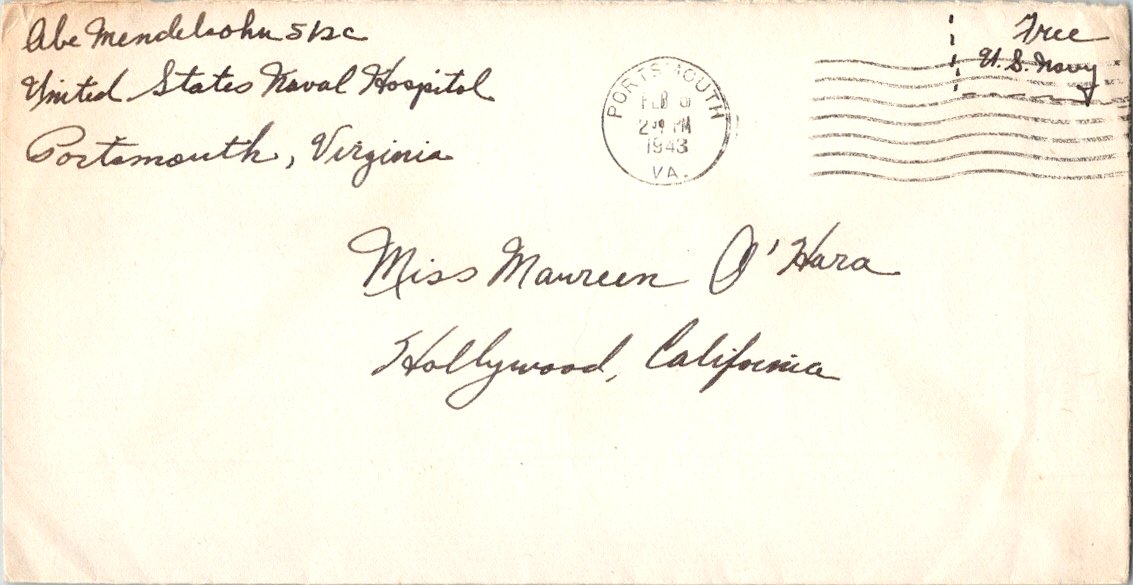 Abe Mendelsohn S1/2C
United States Naval Hospital
Portsmouth, Virginia
Free
U.S. Navy
PORTSMOUTH
FEB
PM
1943
VA.
Miss Maureen O'Hara
Hollywood, California